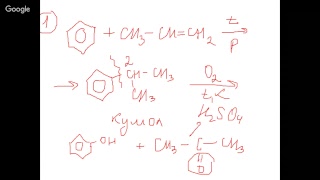 Google
1 + CH₃-CH=CH₂ t, P
2 CH-CH₃ O₂
CH₃ t, k
Кумол H₂SO₄
OH + CH₃-C-CH₃
O